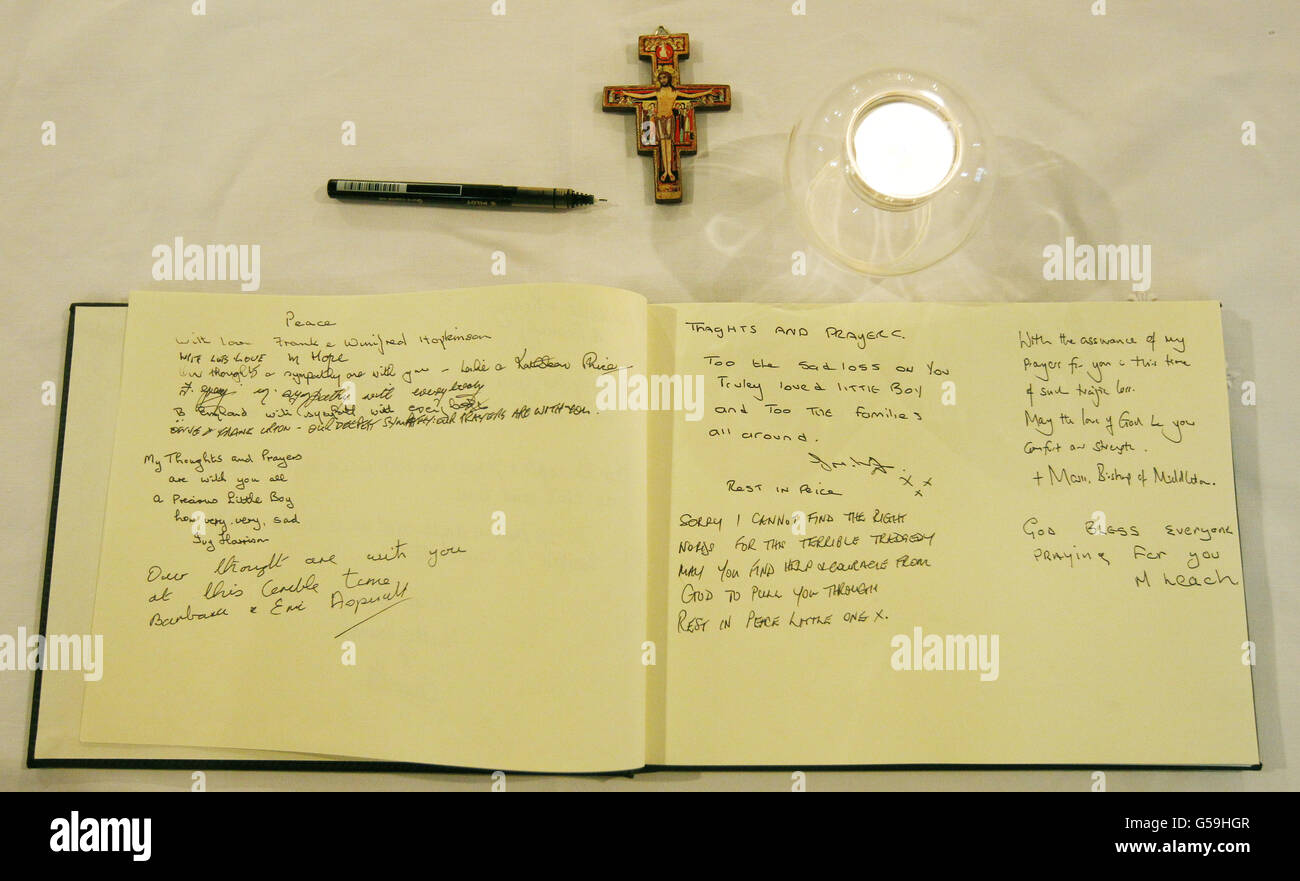 PILOT
Peace
With love Frank & Winifred Hopkinson
WITH LOVE IN HOPE
thoughts & sympathy are with you - Leslie & Kathleen Price
sympathy with everybody
B England with sympathy with everybody
& FRANK UPTON - OUR DEEPEST SYMPATHY. OUR PRAYERS ARE WITH YOU.
My Thoughts and Prayers
are with you all
a Precious Little Boy
how very, very, sad
Ivy Harrison
Our thought are with you
at this terrible time
Barbara & Eric Aspinall
THAGHTS AND PRAYERS.
Too the sad loss on You
Truley loved little Boy
and Too The Families
all around.
x x x
REST IN PEICE
SORRY I CANNOT FIND THE RIGHT
WORDS FOR THIS TERRIBLE TREDGEDY
MAY YOU FIND HELP & COURAGE FROM
GOD TO PULL YOU THROUGH
REST IN PEACE LITTLE ONE X.
With the assurance of my
prayers for you at this time
of such tragic loss.
May the love of God be your
comfort and strength.
+ Mark, Bishop of Middleton.
GOD BLESS everyone
PRAYING For you
M Leach
a
alamy
alamy stock photo
G59HGR
www.alamy.com